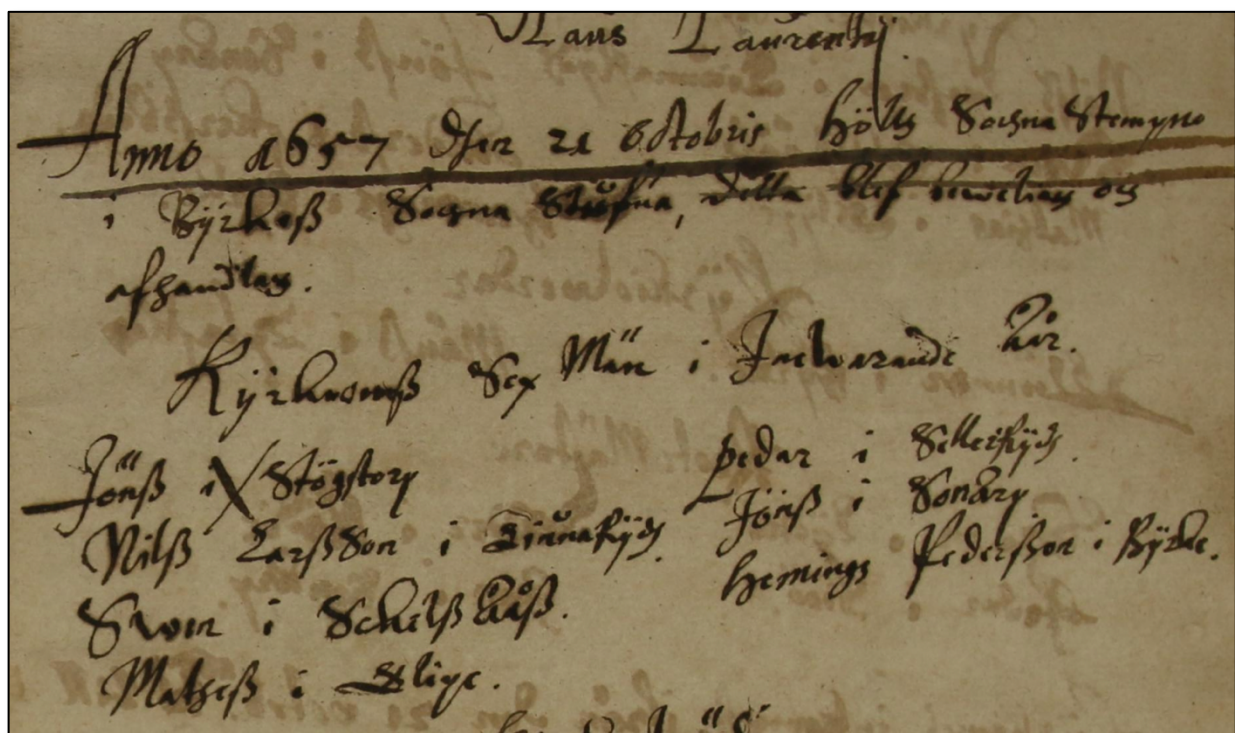 Hans Laurentij
Anno 1657 Den 21 Octobris höltz Sochna Stempno
i Kyrkeß Sochna Stufua, detta blef bewiliat och
afhandlat.
Kyrkionß Sex Män i Inewarande Åår.
Jönß i Stögstorp
Nilß Larßson i Linnaryd.
Swen i Schelß Ååß.
Matheß i Slipe.
Pedar i Sellerÿd.
Jönß i Sonarp
Hemings Pederßon i Kyrke.